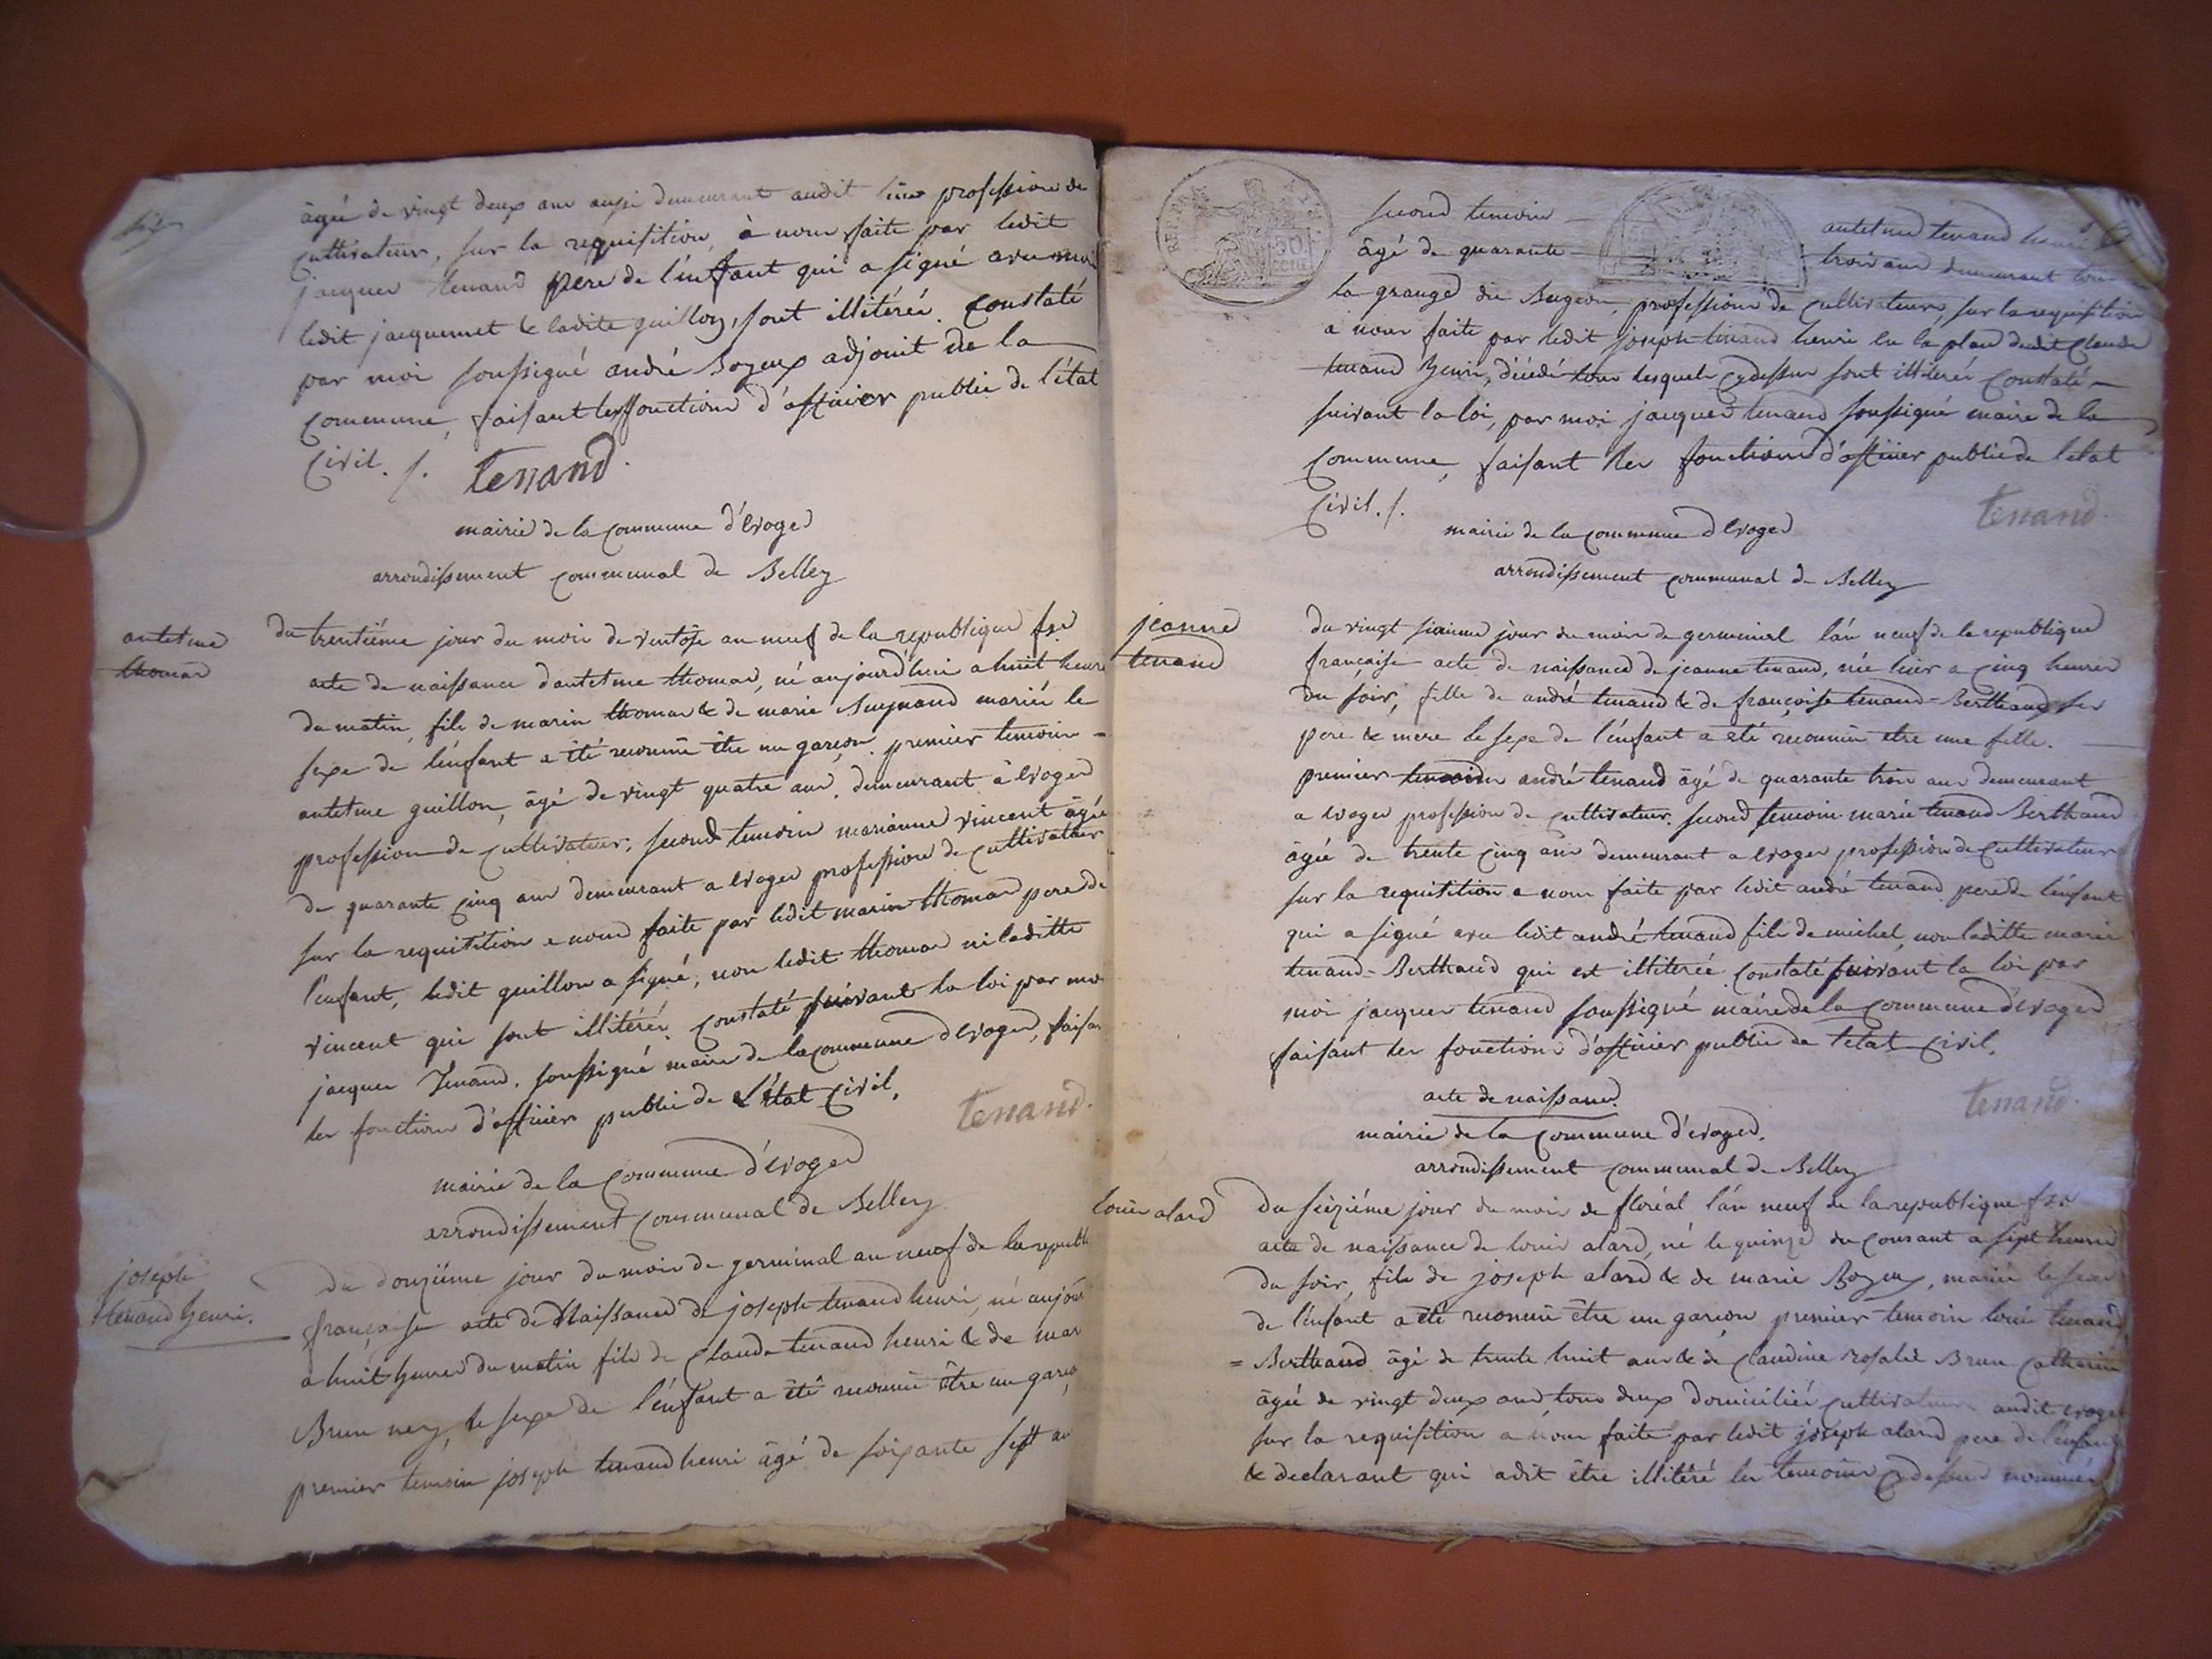 âgée de vingt deux ans aussi demeurant audit lieu profession de
cultivateur, sur la requisition, à nous faite par ledit
jacques tenand pere de l'enfant qui a signé avec moi
ledit jacquemet & ladite guillon, sont illitérés. Constaté
par moi soussigné andré Bozeux adjoint de la
Commune, faisant les fonctions d'officier public de l'état
Civil. /.
tenand
mairie de la Commune d'Evoges
arrondissement communal de Belley
antelme
thomas
du trentiéme jour du mois de ventôse an neuf de la republique fse
acte de naissance d'antelme thomas, né aujourd'hui a huit heures
du matin, fils de marin thomas & de marie mariés le
sexe de l'enfant a été reconnu être un garçon. premier temoin
antelme guillon, âgé de vingt quatre ans, demeurant à Evoges
profession de Cultivateur, second temoin marianne vincent âgée
de quarante cinq ans demeurant a Evoges profession de Cultivateur
sur la requisition a nous faite par ledit marin thomas pere de
l'enfant, ledit guillon a signé, non ledit thomas ni laditte
vincent qui sont illitérés. Constaté suivant la loi par moi
jacques Tenand, soussigné maire de la Commune d'Evoges, faisa
les fonctions d'officier public de L'état Civil.
tenand.
mairie de la Commune d'Evoges
arrondissement Communal de Belley
joseph
tenand henri.
du douziéme jour du mois de germinal an neuf de la republ
française acte de Naissance de joseph tenand henri, né aujour
a huit heures du matin fils de Claude tenand henri & de mar
Brun ney, le sexe de l'enfant a été reconnu être un garço
premier temoin joseph tenand henri âgé de soixante sept an
second temoin antelme tenand
âgé de quarante trois ans demeurant
la grange du profession de Cultivateurs, sur la requisition
à nous faite par ledit joseph tenand henri en la place dudit Claude
tenand henri, décédé lesquels cydessus sont illitérés Constaté
suivant la loi, par moi jacques tenand soussigné maire de la
Commune, faisant les fonctions d'officier public de l'etat
Civil. /.
tenand.
mairie de la Commune d'Evoges
arrondissement communal de Belley
jeanne
tenand
du vingt sixieme jour du mois de germinal l'an neuf de la republique
française acte de naissance de jeanne tenand, née hier a cinq heures
du soir, fille de andré tenand & de françoise tenand-Berthand ses
pere & mere le sexe de l'enfant a été reconnu etre une fille.
premier temoin andré tenand âgé de quarante trois ans demeurant
a Evoges profession de cultivateur. second temoin marie tenand Berthand
âgée de trente cinq ans demeurant a Evoges profession de Cultivateur
sur la requisition a nous faite par ledit andré tenand pere de l'enfant
qui a signé avec ledit andré tenand fils de michel, non laditte marie
tenand-Berthand qui est illiterée. Constaté suivant la loi par
moi jacques tenand soussigné maire de la Commune d'Evoges
faisant les fonctions d'officier public de l'etat Civil.
tenand.
acte de naissance.
mairie de la Commune d'Evoges.
arrondissement communal de Belley
Louis alard
Du sixziéme jour du mois de floréal l'an neuf de la republique fse
acte de naissance de louis alard, né le quinze du Courant a sept heures
du soir, fils de joseph alard & de marie Bozeux, mariés le sexe
de l'enfant a été reconnu être un garçon premier temoin louis tenand
= Berthand âgé de trente huit ans & de Claudine rosalie Brun Catherin
âgée de vingt deux ans, tous deux domiciliés cultivateurs audit Evoges
sur la requisition a nous faite par ledit joseph alard pere de l'enfant
& declarant qui a dit être illitéré les temoins cydessus nommés